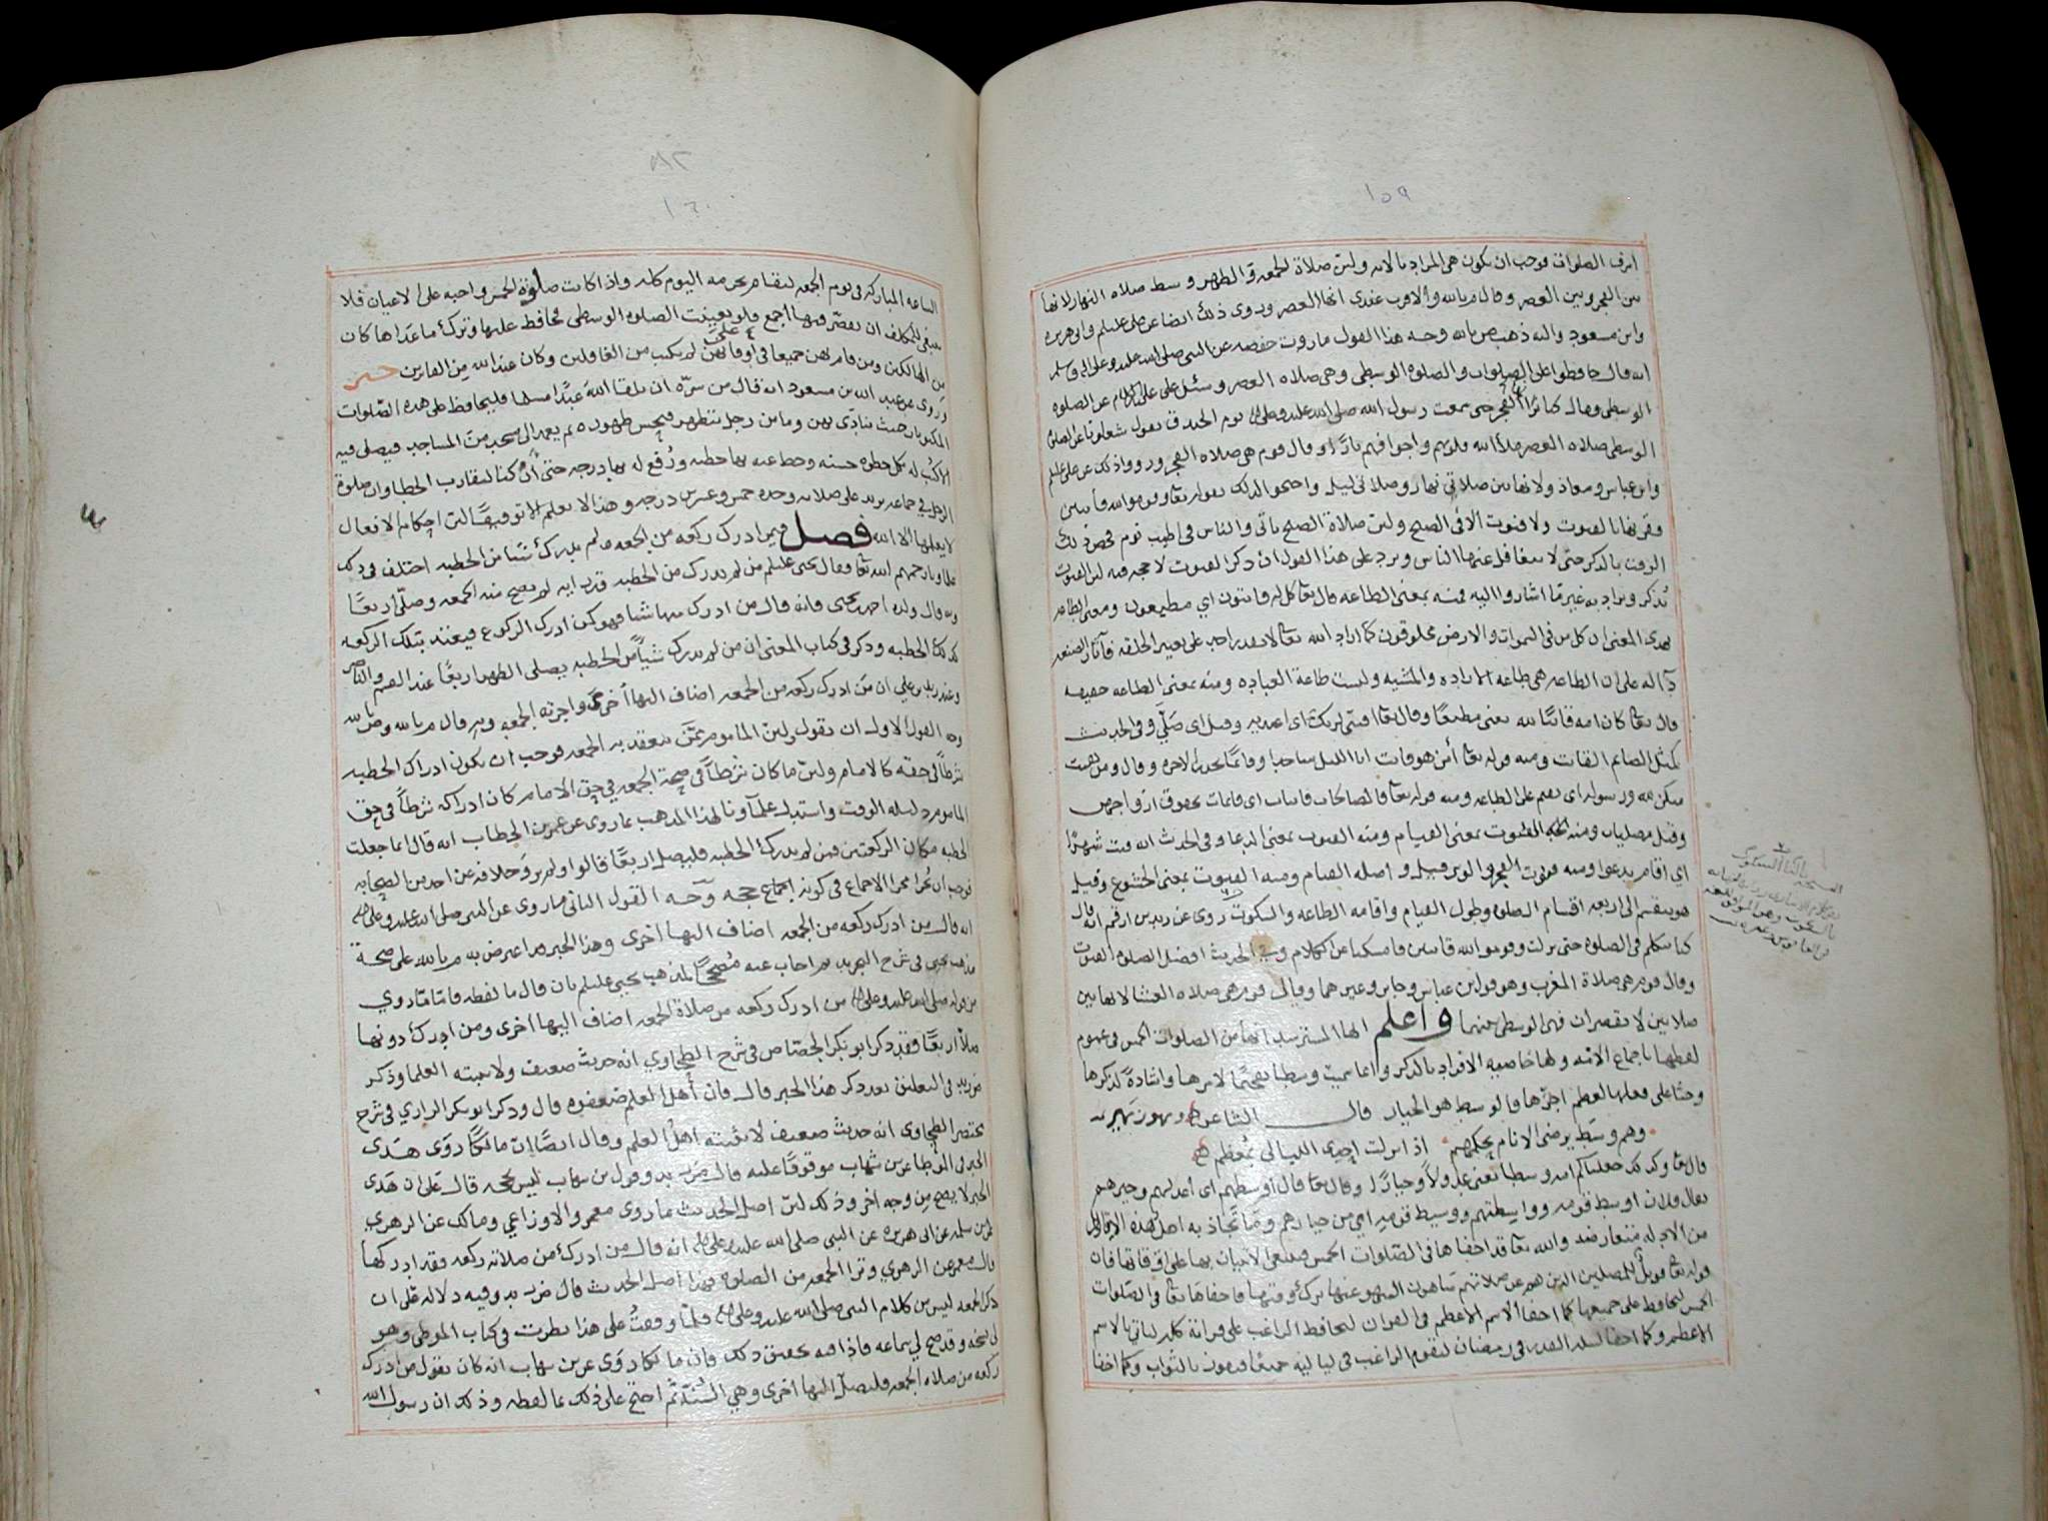 ١٥٩
اشرف الصلوات فوجب ان يكون هي المراد بالايه ولين صلاة الجمعه والظهر وسط صلاه النهار لانها
بين الفجر وبين العصر وقال م بالله والاقرب عندي انها العصر وروى ذلك ايضا عن علي عليلم وابو هريره
وابن مسعود واليه ذهب ص بالله وجه هذا القول ما روت حفصه عن النبي صلى الله عليه وعلى اله وسلم
انه قال حافظوا على الصلوات والصلوه الوسطى وهي صلاه العصر وسئل علي عليه السلام عن الصلوه
الوسطى وقال كنا نراها الفجر حتى سمعت رسول الله صلى الله عليه وعلى اله يوم الخندق يقول شغلونا عن الصلوه
الوسطى صلاه العصر ملأ الله قلوبهم واجوافهم نارًا وقال قوم هي صلاه الفجر ورووا ذلك عن علي عليلم
وابن عباس ومعاذ ولانها بين صلاتي نهار وصلاتي ليل واحتجوا لذلك بقوله تعا وقوموا لله قانتين
وقرنها بالقنوت ولا قنوت الا في الصبح ولين صلاة الصبح ياتي والناس في اطيب نوم فخص ذلك
الوقت بالذكر حتى لا يتغافل عنها الناس ويرد على هذا القول ان ذكر القنوت لا حجه فيه لين القنوت
يُذكر ويراد به غير ما اشاروا اليه فمنه بمعنى الطاعه قال تعا كل له قانتون اي مطيعون ومعنى الطاعه
بهذي المعنى ان كل من في السموات والارض مخلوقون كما اراد الله تعا لا يقدر احد على تغيير الخلقه فآثار الصنعه
دآله على ان الطاعه هي طاعه الاراده والمشيه وليست طاعة العباده ومنه بمعنى الطاعه حقيقه
قال تعا كان امه قانتًا لله يعني مطيعًا وقال تعا اقنتي لربك اي اعبديه وقيل اي صَلّي وفي الحديث
كمثل الصايم القانت ومنه قوله تعا أمن هو قانت انا الليل ساجدا وقائمًا يحذر الاخره وقال ومن يقنت
منكن لله ورسوله اي يقم على الطاعه ومنه قوله تعا فالصالحات قانتات اي قايمات بحقوق ازواجهن
وقيل مصليات ومنه القنوت بمعنى القيام ومنه القنوت بمعنى الدعا وفي الحديث انه قنت شهرًا
اي اقام يدعوا ومنه قنوت الفجر والوتر قيله واصله القيام ومنه القنوت بمعنى الخشوع وقيل
هو ينقسم الى اربعه اقسام الصلوه وطول القيام واقامه الطاعه والسكوت روى عن زيد بن ارقم انه قال
كنا نتكلم في الصلوه حتى نزلت وقوموا لله قانتين فامسكنا عن الكلام وفي الحديث افضل الصلوه القنوت
وقال قوم هي صلاة المغرب وهو قول ابن عباس وجابر وغيرهما وقال قوم هي صلاه العشا لانها بين
صلاتين لا يقصران فهي الوسطى منهما واعلم ايها المسترشد انها من الصلوات الخمس في عموم
لفظها باجماع الامّه ولها خاصيه الافراد بالذكر وانما سميت وسطا تفخيمًا لامرها واشادةً لذكرها
وحثا على فعلها لعظم اجرها فالوسط هو الخيار قال الشاعر وهو زهير
وهم وسَط يرضى الانام بحكمهم اذا نزلت إحدى الليالي بمُعظم
قال تعا وكذلك جعلناكم امه وسطا يعني عدولاً وخيارًا وقال تعا قال أوسطهم اي اعدلهم وخيرهم
يقال فلان اوسط قومه وواسِطتهم ووسيط قومِه اي من خيارهم وما تجاذبه اهل هذه الاقاويل
من الادله متعارضه والله تعا قد اخفاها في الصّلوات الخمس فينبغي الاتيان بها على اوقاتها فان
قوله تعا فويل للمصلين الذين هم عن صلاتهم ساهون السهو عنها ترك وقتها فاخفاها تعا في الصّلوات
الخمس ليحافظ على جميعها كما اخفا الاسم الاعظم في القران ليحافظ الراغب على قرائة كله لياتي بالاسم
الاعظم وكما اخفا ليله القدر في رمضان ليقوم الراغب في لياليه جميعًا فيفوز بالثواب وكما اخفا
١٦٠
الساعه المباركه في يوم الجمعه ليقام بحرمه اليوم كله واذا كانت صلوة الخمس واجبه على الاعيان فلا
ينبغي للمكلف ان يقصّر فيها اجمع فلو تعينت الصلوه الوسطى فحافظ عليها وترك ما عداها كان
من الهالكين ومن قام بهن جميعا في اوقاتهن لم يكتب من الغافلين وكان عند الله مِن الفائزين خبر
وَرَوى عن عبد الله بن مسعود انه قال من سرّه ان يلقا الله عَبدًا مسلما فليحافظ على هذه الصّلوات
المكتوبات حيث ينادَى بهن وما من رجل يتطهر فيحسن طهوره ثم يعمد الى مسجد من المساجد فيصلي فيه
الا كُتب له بكل خطوه حسنه وحط عنه بها خطيه ورُفع له بها درجه حتى ان كنا لنقارب الخطا وان صلوة
الرجل في جماعه يزيد على صلاته وحده خمس وعشرين درجه وهذا لا يعلم الا توقيفًا لين احكام الافعال
لا يعلمها الا الله فصل فيمن ادرك ركعه من الجمعه ولم يدرك شيئا من الخطبه اختلف في ذلك
علماؤنا رحمهم الله تعا فقال يحيى عليلم من لم يدرك من الخطبه قدر ايه لم يصح منه الجمعه وصلّى اربعًا
وبه قال ولده احمد بن يحيى فانه قال من ادرك منها شيئا فهو كمن ادرك الركوع فيعتد بتلك الركعه
كذلك الخطبه وذكر في كتاب المغني ان من لم يدرك شيئًا من الخطبه يصلي الظهر اربعًا عند القسم والناصر
وعند زيد بن علي ان من ادرك ركعه من الجمعه اضاف اليها أخرى واجزته الجمعه وبه قال م بالله وص بالله
وجه القول الاول ان نقول ولين الماموم ممّن تنعقد به الجمعه فوجب ان يكون ادراك الخطبه
شرطًا في حقه كالامام ولين ما كان شرطًا في صحة الجمعه في حق الامام كان ادراكه شرطًا في حق
الماموم دليله الوقت واستدل علمآونا لهذا المذهب بما روى عن عمر بن الخطاب انه قال انما جعلت
الخطبه مكان الركعتين فمن لم يدرك الخطبه فليصل اربعًا قالوا ولم يروَ خلافه عن احد من الصحابه
فوجب ان يجرا مجرا الاجماع في كونه إجماع حجه وَجه القول الثاني ما روى عن النبي صلى الله عليه وعلى اله
انه قال من ادرك ركعه من الجمعه اضاف اليها اخرى وهذا الخبر مما اعترض به م بالله على صحة
مذهب يحيى في شرح التجريد ثم اجاب عنه مُصححًا لمذهب يحيى عليلم بان قال ما لفظه فامّا ما روي
من قوله صلى الله عليه وعلى اله من ادرك ركعه من صلاة الجمعه اضاف اليها اخرى ومن ادرك دونها
صلاّ اربعًا فقد ذكر ابو بكر الجصّاص في شرح الطحاوي انه حديث ضعيف ولا يثبته العلما وذكر
ض زيد في التعليق بعد ذكر هذا الخبر قال فان أهل العلم ضعفوه قال وذكر ابو بكر الرازي في شرح
مختصر الطحاوي انه حديث ضعيف لا يثبته اهل العلم وقال ايضًا ان مالكًا روَى هذى
الخبر في الموطا عن بن شهاب موقوفًا عليه قال ض زيد وقول بن شهاب ليس بحجه قال على ان هذى
الخبر لا يصح من وجه اخر وذلك لين اصل الحديث ما روى معمر والاوزاعي ومالك عن الزهري
عن بن سلمه عن ابي هريره عن النبي صلى الله عليه وعلى اله انه قال من ادرك من صلاته ركعه فقد ادركها
قال معمر عن الزهري ونرا الجمعه من الصلوه فهذا اصل الحديث قال ض زيد وفيه دلاله على ان
ذكر الجمعه ليس من كلام النبي صلى الله عليه وعلى اله فلمّا وقفتُ على هذا نظرت في كتاب الموطى وهو
لي نسخه وقد صح لي سماعه فاذا فيه تحقيق ذلك فان مالكا روَى عن بن شهاب انه كان يقول من ادرك
ركعه من صلاه الجمعه فليصلّ اليها اخرى وهي السُنّة ثم احتج على ذلك بما لفظه وذلك ان رسول الله